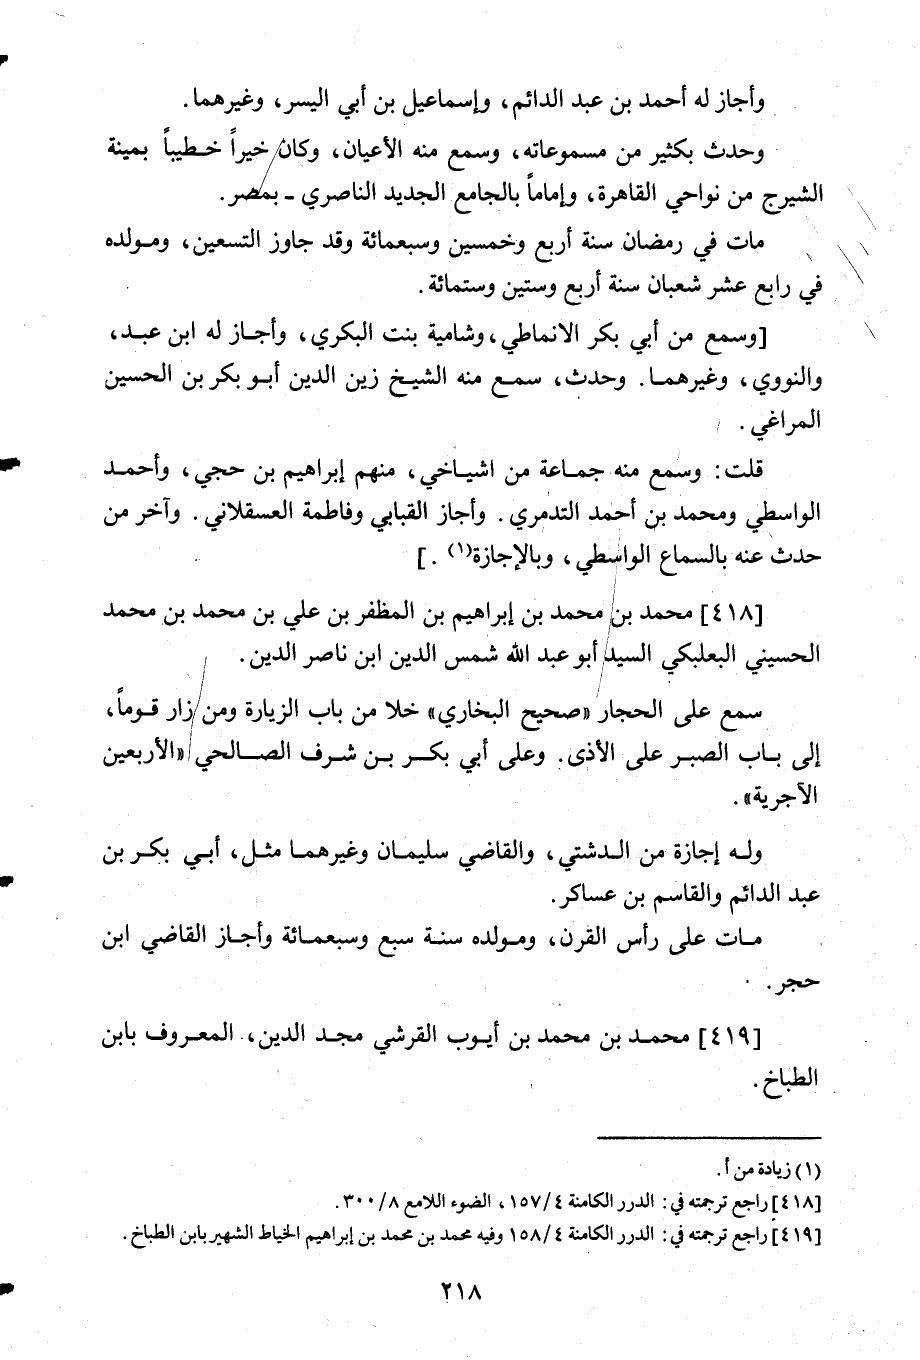 وأجاز له أحمد بن عبد الدائم، وإسماعيل بن أبي اليسر، وغيرهما.
وحدث بكثير من مسموعاته، وسمع منه الأعيان، وكان خيراً خطيباً بمينة
الشيرج من نواحي القاهرة، وإماماً بالجامع الجديد الناصري ـ بمصر.
مات في رمضان سنة أربع وخمسين وسبعمائة وقد جاوز التسعين، ومولده
في رابع عشر شعبان سنة أربع وستين وستمائة.
[وسمع من أبي بكر الانماطي، وشامية بنت البكري، وأجاز له ابن عبد،
والنووي، وغيرهما. وحدث، سمع منه الشيخ زين الدين أبو بكر بن الحسين
المراغي.
قلت: وسمع منه جماعة من اشياخي، منهم إبراهيم بن حجي، وأحمد
الواسطي ومحمد بن أحمد التدمري. وأجاز القبابي وفاطمة العسقلاني. وآخر من
حدث عنه بالسماع الواسطي، وبالإجازة(١) .]
[٤١٨] محمد بن محمد بن إبراهيم بن المظفر بن علي بن محمد بن محمد
الحسيني البعلبكي السيد أبو عبد الله شمس الدين ابن ناصر الدين.
سمع على الحجار «صحيح البخاري» خلا من باب الزيارة ومن زار قوماً،
إلى باب الصبر على الأذى. وعلى أبي بكر بن شرف الصالحي «الأربعين
الآجرية».
وله إجازة من الدشتي، والقاضي سليمان وغيرهما مثل، أبي بكر بن
عبد الدائم والقاسم بن عساكر.
مات على رأس القرن، ومولده سنة سبع وسبعمائة وأجاز القاضي ابن
حجر.
[٤١٩] محمد بن محمد بن أيوب القرشي مجد الدين، المعروف بابن
الطباخ.
(١) زيادة من أ.
[٤١٨] راجع ترجمته في: الدرر الكامنة ١٥٧/٤، الضوء اللامع ٣٠٠/٨.
[٤١٩] راجع ترجمته في: الدرر الكامنة ١٥٨/٤ وفيه محمد بن محمد بن إبراهيم الخياط الشهير بابن الطباخ.
٢١٨